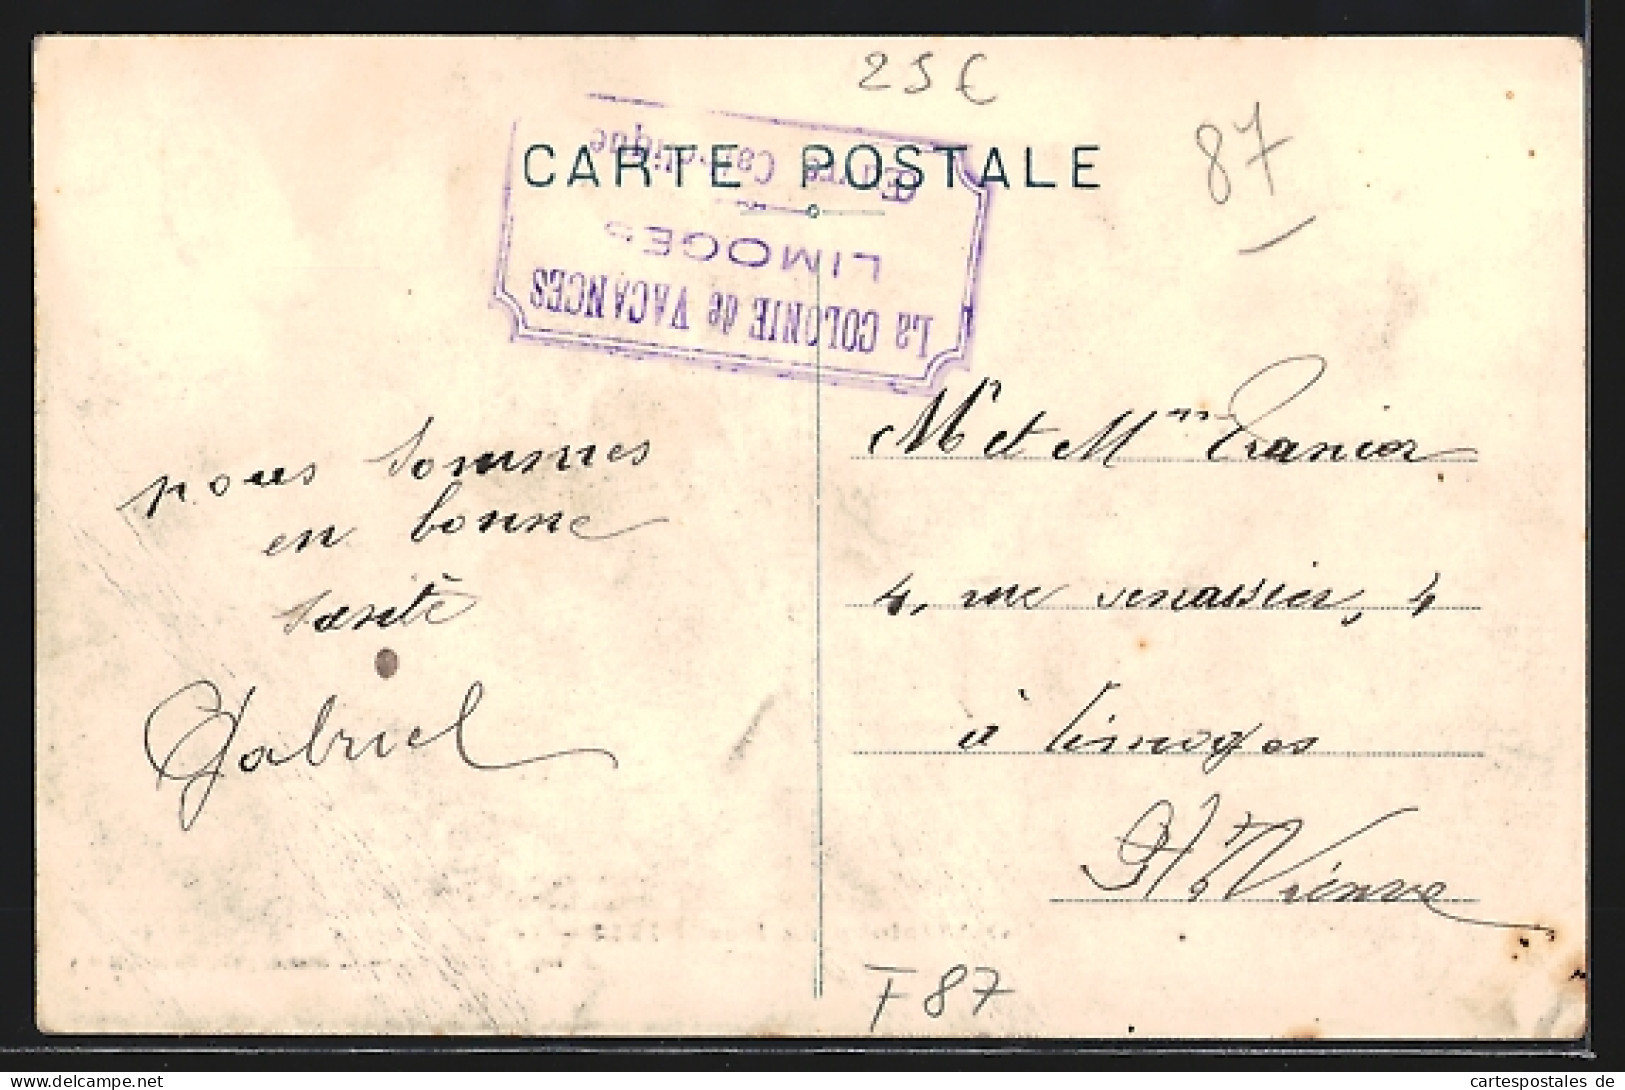 25€
87
CARTE POSTALE
La COLONIE de VACANCES
LIMOGES
nous sommes
en bonne
santé
Gabriel
M et Mme
4, rue senassier, 4
à Limoges
Hte Vienne
F 87
cartespostales de